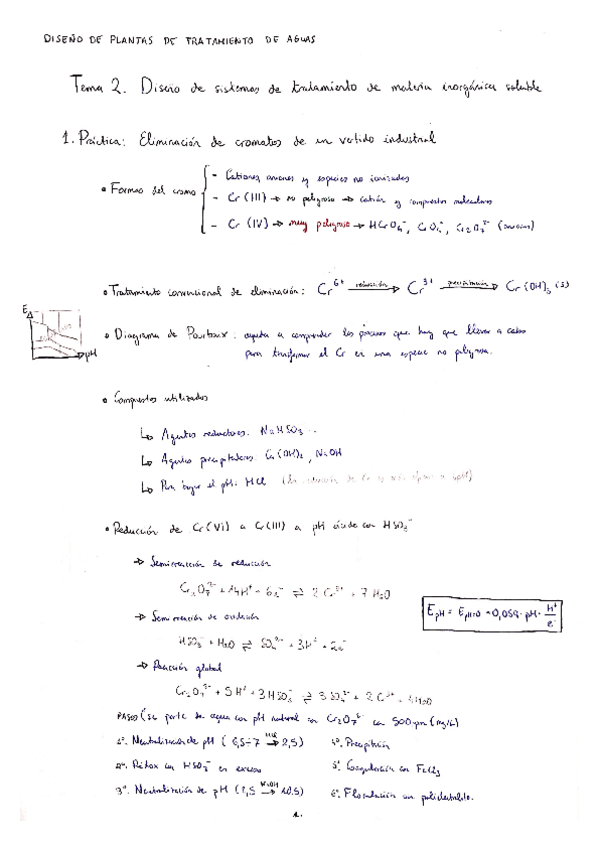 DISEÑO DE PLANTAS DE TRATAMIENTO DE AGUAS
Tema 2. Diseño de sistemas de tratamiento de materia inorgánica soluble
1. Práctica: Eliminación de cromatos de un vertido industrial
• Formas del cromo
- Cationes, aniones y especies no ionizadas
- Cr (III) → no peligroso → catión y compuestos moleculares
- Cr (IV) → muy peligroso → HCrO₄⁻, CrO₄⁻, Cr₂O₇²⁻ (aniones)
• Tratamiento convencional de eliminación: Cr⁶⁺ reducción → Cr³⁺ precipitación → Cr(OH)₃ (s)
E
pH
• Diagrama de Pourbaux: ayuda a comprender los procesos que hay que llevar a cabo
para transformar el Cr en una especie no peligrosa.
• Compuestos utilizados
↳ Agentes reductores: NaHSO₃ ...
↳ Agentes precipitadores: Ca(OH)₂, NaOH
↳ Para bajar el pH: HCl (la reducción de Cr es más rápida a ↓pH)
• Reducción de Cr(VI) a Cr(III) a pH ácido con HSO₃⁻
→ Semirreacción de reducción
Cr₂O₇²⁻ + 14H⁺ + 6e⁻ ⇌ 2Cr³⁺ + 7H₂O
→ Semirreacción de oxidación
HSO₃⁻ + H₂O ⇌ SO₄²⁻ + 3H⁺ + 2e⁻
EpH = EpH=0 - 0,059 · pH · H⁺/e⁻
→ Reacción global
Cr₂O₇²⁻ + 5H⁺ + 3HSO₃⁻ ⇌ 3SO₄²⁻ + 2Cr³⁺ + 4H₂O
PASOS (se parte de agua con pH natural con Cr₂O₇²⁻ en 500 ppm (mg/L)
1º. Neutralización de pH (6,5-7 HCl → 2,5) 4º. Precipitación
2º. Rédox con HSO₃⁻ en exceso 5º. Coagulación con FeCl₃
3º. Neutralización de pH (2,5 NaOH → 10,5) 6º. Floculación con polielectrolito.
1.